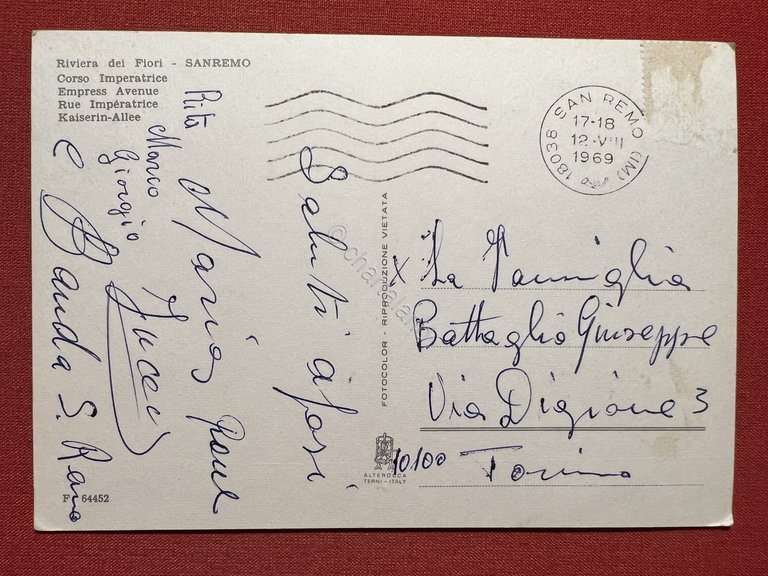 Riviera dei Fiori - SANREMO
Corso Imperatrice
Empress Avenue
Rue Impératrice
Kaiserin-Allee
18038 SAN REMO (IM)
17-18
12-VIII
1969
Saluti afosi
Maria Raul
Rita
Marco
Giorgio
e Banda S. Remo
FOTOCOLOR - RIPRODUZIONE VIETATA
x La Famiglia
Battaglio Giuseppe
Via Digione 3
10100 Torino
ALTEROCCA
TERNI - ITALY
F 64452